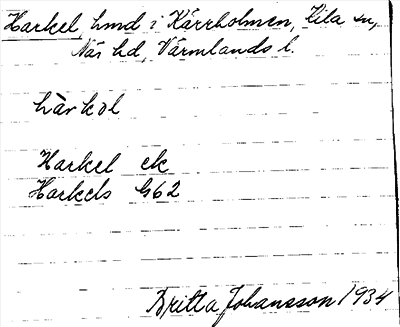 Harkel, hmd i Kärrholmen, Kila sn,
Näs hd, Värmlands l.
hàrkəl
Harkel ek
Harkels G62
Britta Johansson 1934